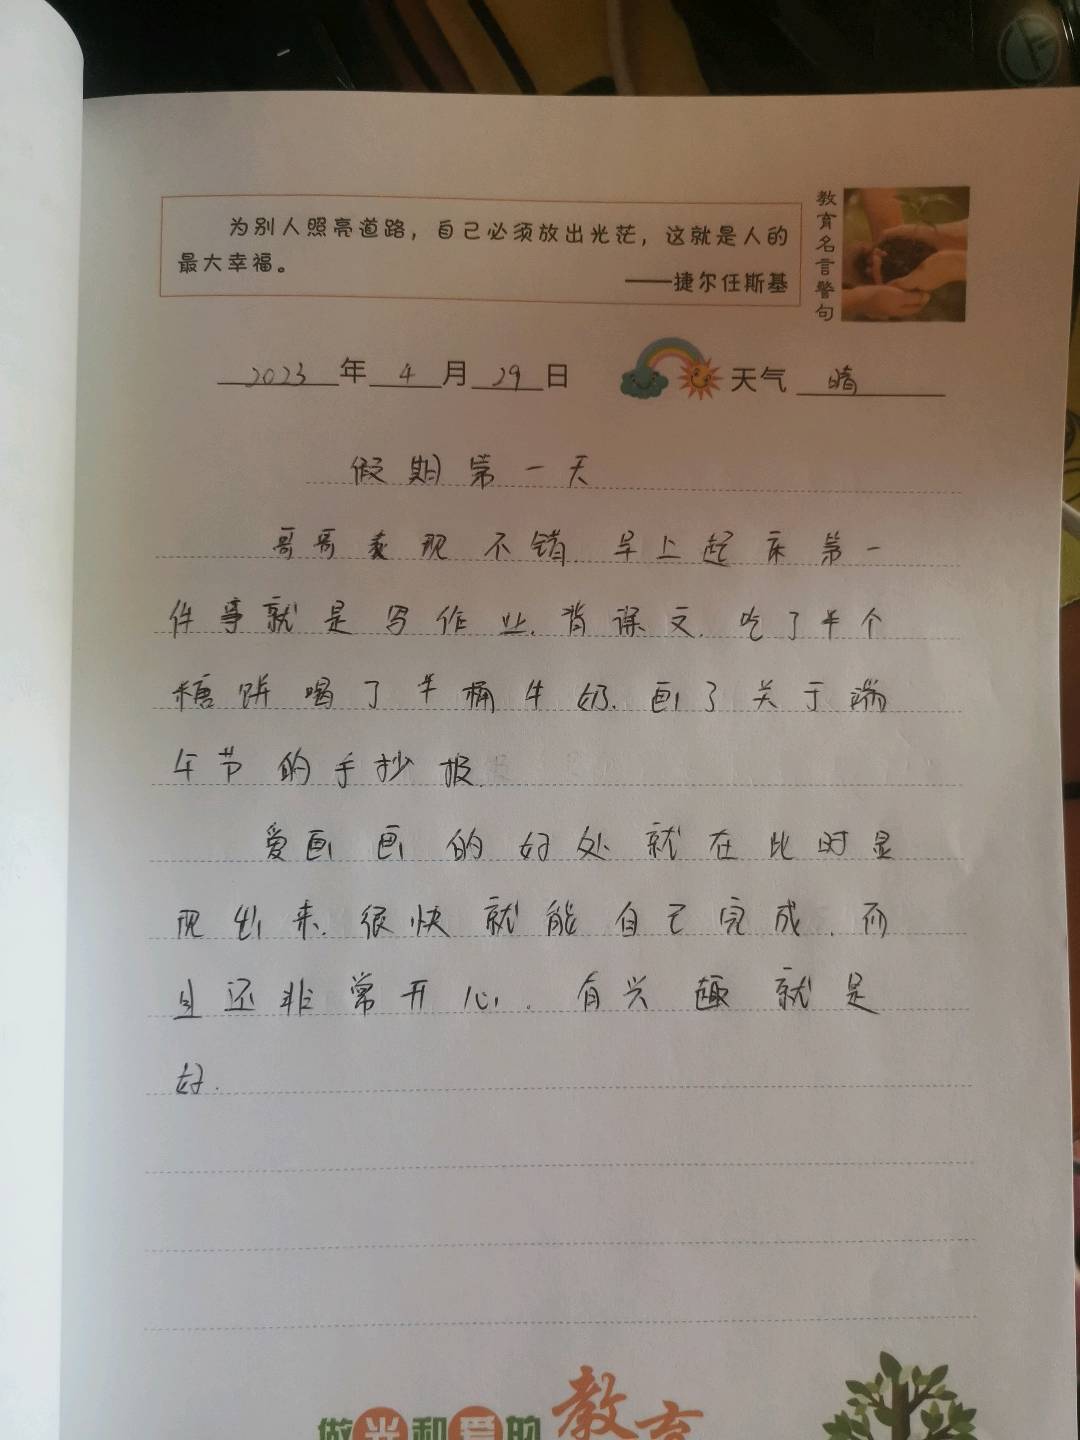 为别人照亮道路，自己必须放出光茫，这就是人的
最大幸福。
——捷尔任斯基
教育名言警句
2023年4月29日 天气 晴
假期第一天
哥哥表现不错.早上起床第一
件事就是写作业.背课文.吃了半个
糖饼喝了半桶牛奶.画了关于端
午节的手抄报.
爱画画的好处就在此时显
现出来.很快就能自己完成.而
且还非常开心.有兴趣就是
好.
做光和爱的教育